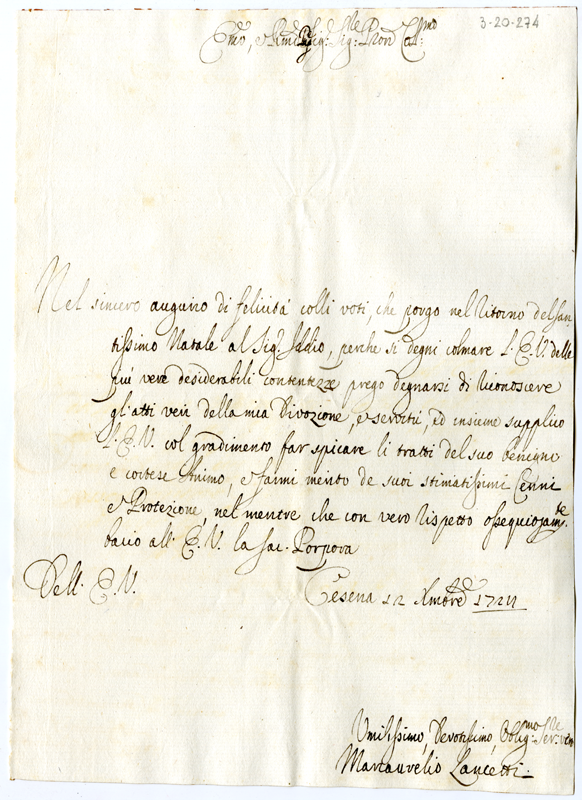 3-20-274
Em.o, e Rmo Sig.r Sig.r Pron Coll.mo
Nel sincero augurio di felicità colli voti, che porgo nel ritorno del San-
tissimo Natale al Sig.r Iddio, perche si degni colmare L'E.V. delle
più vere desiderabili contentezze prego degnarsi di riconoscere
gl'atti veri della mia Divozione, e servitù, ed insieme supplico
L'E.V. col gradimento far spicare li tratti del suo benegno
e cortese Animo, e farmi merito de suoi stimatissimi Cenni
e Protezione, nel mentre che con vero rispetto ossequiosam.te
bacio all'E.V. la Sac. Porpora
Dell'E.V.
Cesena 12 Xmbre
Umilissimo, Devotissimo, Oblig.mo Ser.re
Marcaurelio Lancetti